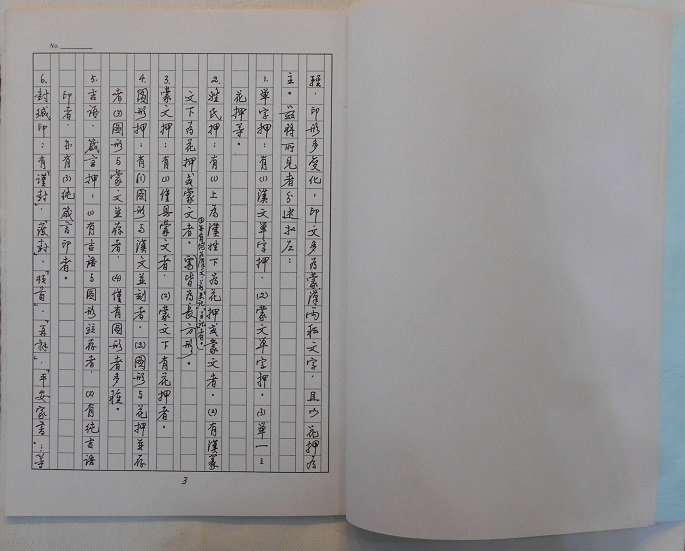 No.
種．印形多變化，印文多為蒙漢兩種文字，且以花押為
主。茲將所見者分述如左：
1.單字押：有(1)漢文單字押．(2)蒙文單字押．(3)單一之
花押等。
2.姓氏押：有(1)上為漢姓下為花押或蒙文者。(2)有漢篆
文下為花押或蒙文者。皆為長方形。
3.蒙文押：有(1)僅具蒙文者．(2)蒙文下有花押者．
4.圖形押：有(1)圖形與漢文並刻者．(2)圖形与花押並存
者(3)圖形与蒙文並存者．(4)僅有圖形者多種。
5.吉語．箴言押：(1)有吉語与圖形並存者．(2)有純吉語
印者．亦有(3)純箴言印者。
6.封緘印：有「謹封」．「護封」．「頓首」．「再拜」．「平安家書」…等
3